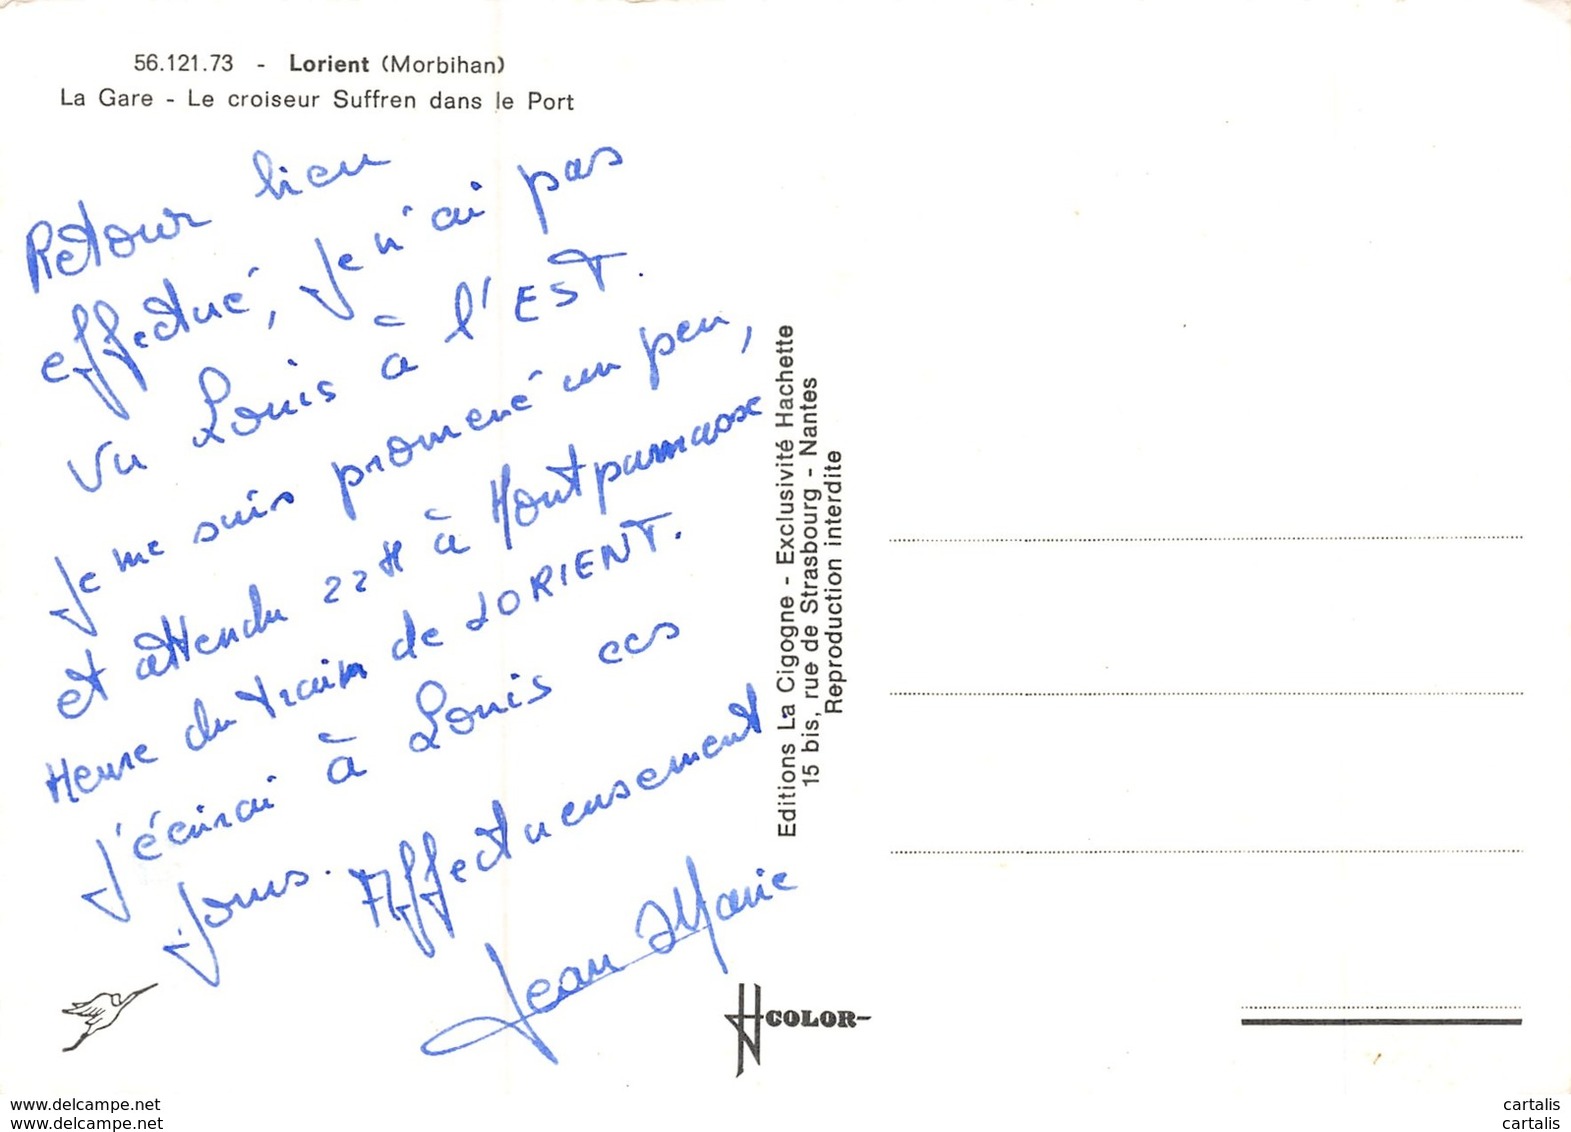 56.121.73 - Lorient (Morbihan)
La Gare - Le croiseur Suffren dans le Port
Retour bien
effectué, Je n'ai pas
vu Louis à l'EST.
Je me suis promené un peu,
et attendu 22H à Montparnasse
Heure du train de LORIENT.
J'écrirai à Louis ces
jours. Affectueusement
Jean Marie
Editions La Cigogne - Exclusivité Hachette
15 bis, rue de Strasbourg - Nantes
Reproduction interdite
COLOR
www.delcampe.net
cartalis
www.delcampe.net
cartalis